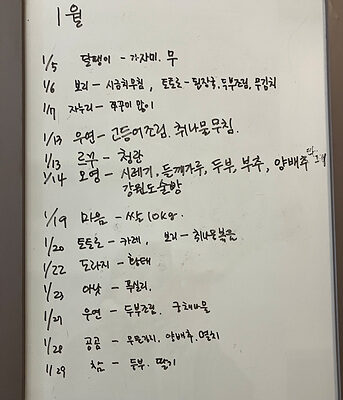 1월
1/5 달팽이 - 가자미. 무
1/6 보리 - 시금치무침, 토토로 - 된장국, 두부조림, 무김치
1/7 자누리 - 쭈꾸미 많이
1/13 우연 - 고등어조림. 취나물무침.
1/13 르꾸 - 천란
1/14 오영 - 시레기, 들깨가루, 두부, 부추, 양배추
강원도술빵
1/19 마음 - 쌀 10kg.
1/20 토토로 - 카레, 보리 - 취나물볶음
1/22 도라지 - 황태
1/23 아낫 -
1/27 우연 - 두부조림. 궁채나물
1/28 공공 - 양배추. 멸치
1/29 참 - 두부. 딸기